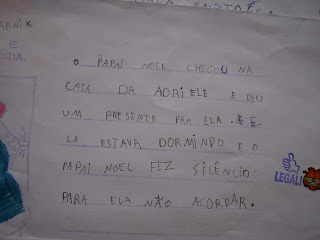 ARNIK
E
O PAPAI NOEL CHEGOU NA
CASA DA ADRIELE E DU
UM PRESENTE PRA ELA. E
LA ESTAVA DORMINDO E O
PAPAI NOEL FEZ SILÊNCIO
PARA ELA NÃO ACORDAR.
LEGAL!